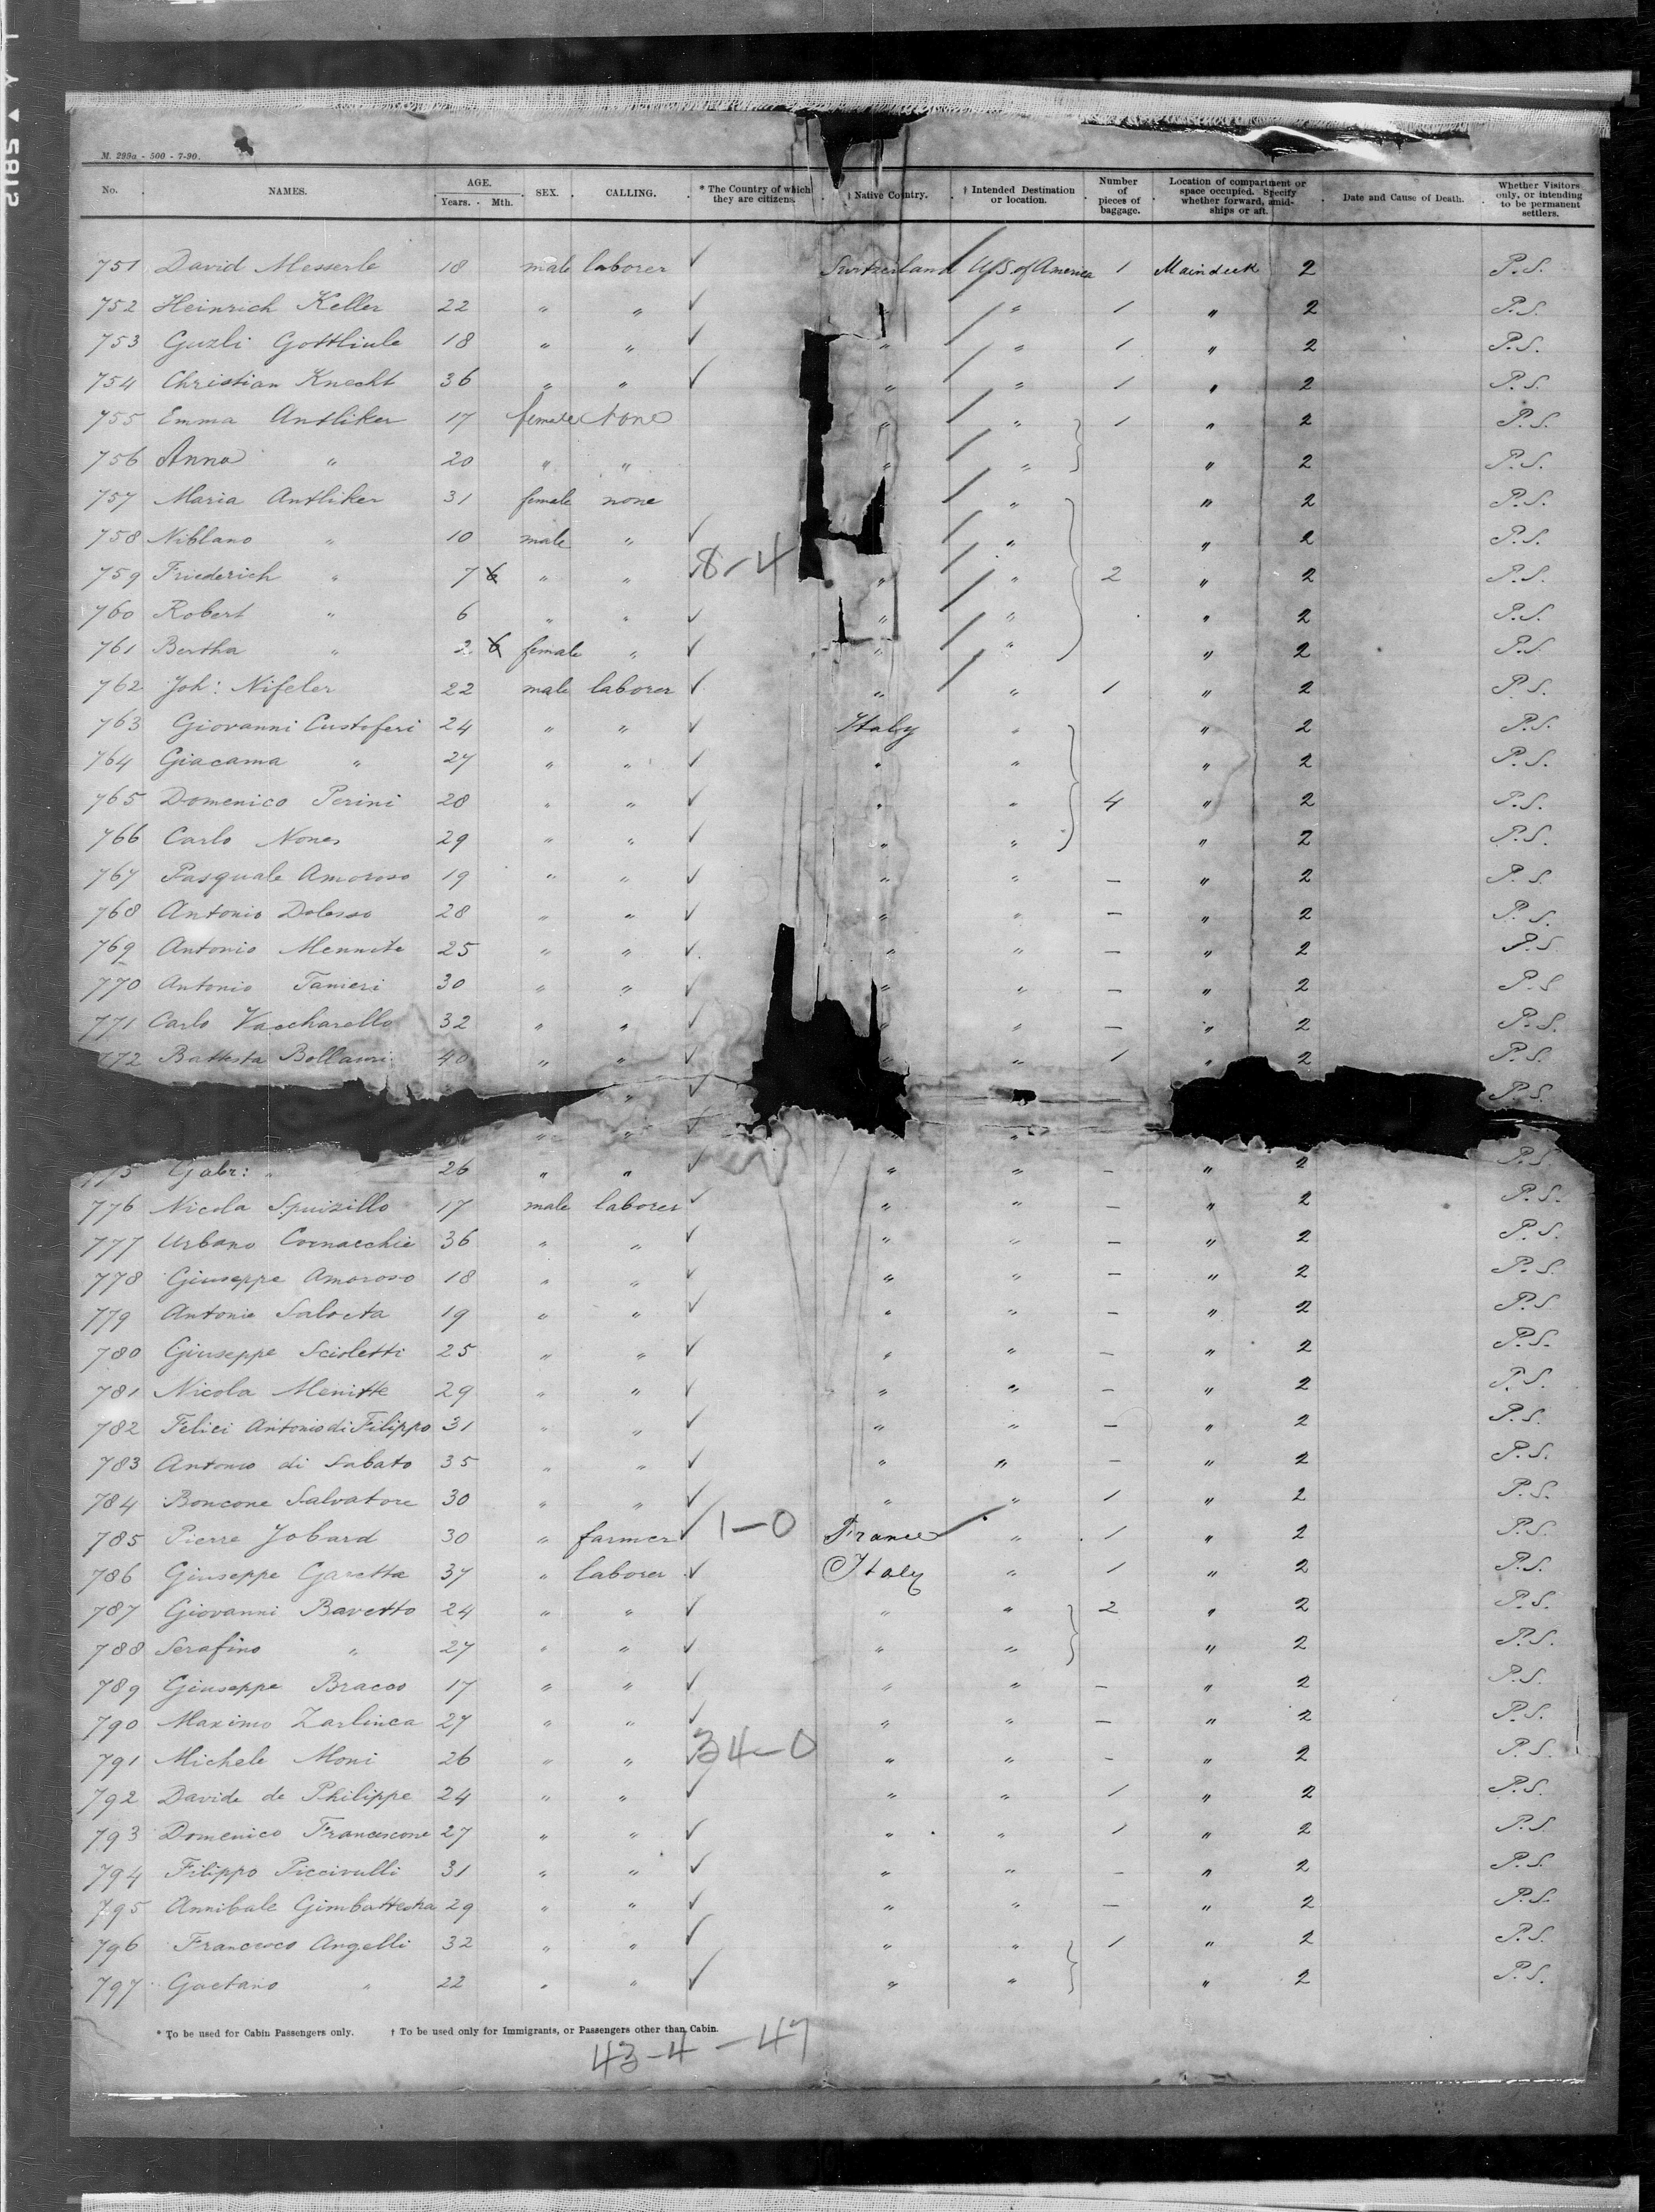 M. 299a - 500 - 7-90.
No. NAMES. AGE. Years. Mth. SEX. CALLING. * The Country of which they are citizens. † Native Country. † Intended Destination or location. Number of pieces of baggage. Location of compartment or space occupied. Specify whether forward, amidships or aft. Date and Cause of Death. Whether Visitors only, or intending to be permanent settlers.
751 David Messerle 18 male laborer ✓ Switzerland U.S. of America 1 Maindeck 2 P.S.
752 Heinrich Keller 22 " " ✓ " " 1 " 2 P.S.
753 Guzli Gottliule 18 " " ✓ " " 1 " 2 P.S.
754 Christian Knecht 36 " " ✓ " " 1 " 2 P.S.
755 Emma Antliker 17 female None " " 1 " 2 P.S.
756 Anna " 20 " " " " " 2 P.S.
757 Maria Antliker 31 female none " " 2 P.S.
758 Niblano " 10 male " ✓ " " 2 P.S.
759 Friederich " 7 6 " " ✓ 8-4 " " 2 " 2 P.S.
760 Robert " 6 " " ✓ " " " 2 P.S.
761 Bertha " 2 6 female " ✓ " " " 2 P.S.
762 Joh: Nifeler 22 male laborer ✓ " " 1 " 2 P.S.
763 Giovanni Custoferi 24 " " ✓ Italy " " 2 P.S.
764 Giacama " 27 " " ✓ " " " 2 P.S.
765 Domenico Perini 28 " " ✓ " " 4 " 2 P.S.
766 Carlo Nones 29 " " ✓ " " " 2 P.S.
767 Pasquale Amoroso 19 " " ✓ " " – " 2 P.S.
768 Antonio 28 " " ✓ " " – " 2 P.S.
769 Antonio Mennite 25 " " ✓ " " – " 2 P.S.
770 Antonio Tanieri 30 " " ✓ " " – " 2 P.S
771 Carlo Vaccharello 32 " " ✓ " " – " 2 P.S.
772 Battista 40 " " ✓ " " 1 " 2 P.S.
" ✓ P.S.
" " "
Gabr: " 26 " " ✓ " " – " 2 P.S.
776 Nicola Spuizillo 17 male laborer ✓ " " – " 2 P.S.
777 Urbano Cornacchie 36 " " ✓ " " – " 2 P.S.
778 Giuseppe Amoroso 18 " " ✓ " " – " 2 P.S.
779 Antonio Salveta 19 " " ✓ " " – " 2 P.S
780 Giuseppe Scioletti 25 " " ✓ " " – " 2 P.S.
781 Nicola Menitte 29 " " ✓ " " – " 2 P.S.
782 Felici Antonio di Filippo 31 " " ✓ " " – " 2 P.S.
783 Antonio di Sabato 35 " " ✓ " " – " 2 P.S.
784 Boncone Salvatore 30 " " ✓ " " 1 " 2 P.S.
785 Pierre Jobard 30 " farmer ✓ 1-0 France " 1 " 2 P.S.
786 Giuseppe Garetta 37 " laborer ✓ Italy " 1 " 2 P.S.
787 Giovanni Bavetto 24 " " ✓ " " 2 " 2 P.S.
788 Serafino " 27 " " ✓ " " " 2 P.S.
789 Giuseppe Bracco 17 " " ✓ " " – " 2 P.S.
790 Maximo Zarlinca 27 " " ✓ " " – " 2 P.S.
791 Michele Moni 26 " " ✓ 34-0 " " – " 2 P.S.
792 Davide de Philippe 24 " " ✓ " " 1 " 2 P.S.
793 Domenico Francescone 27 " " ✓ " " 1 " 2 P.S.
794 Filippo Piccirulli 31 " " ✓ " " – " 2 P.S.
795 Annibale Gimbattesta 29 " " ✓ " " – " 2 P.S.
796 Francesco Angelli 32 " " ✓ " " 1 " 2 P.S.
797 Gaetano " 22 " " ✓ " " " 2 P.S.
* To be used for Cabin Passengers only. † To be used only for Immigrants, or Passengers other than Cabin.
43-4-47